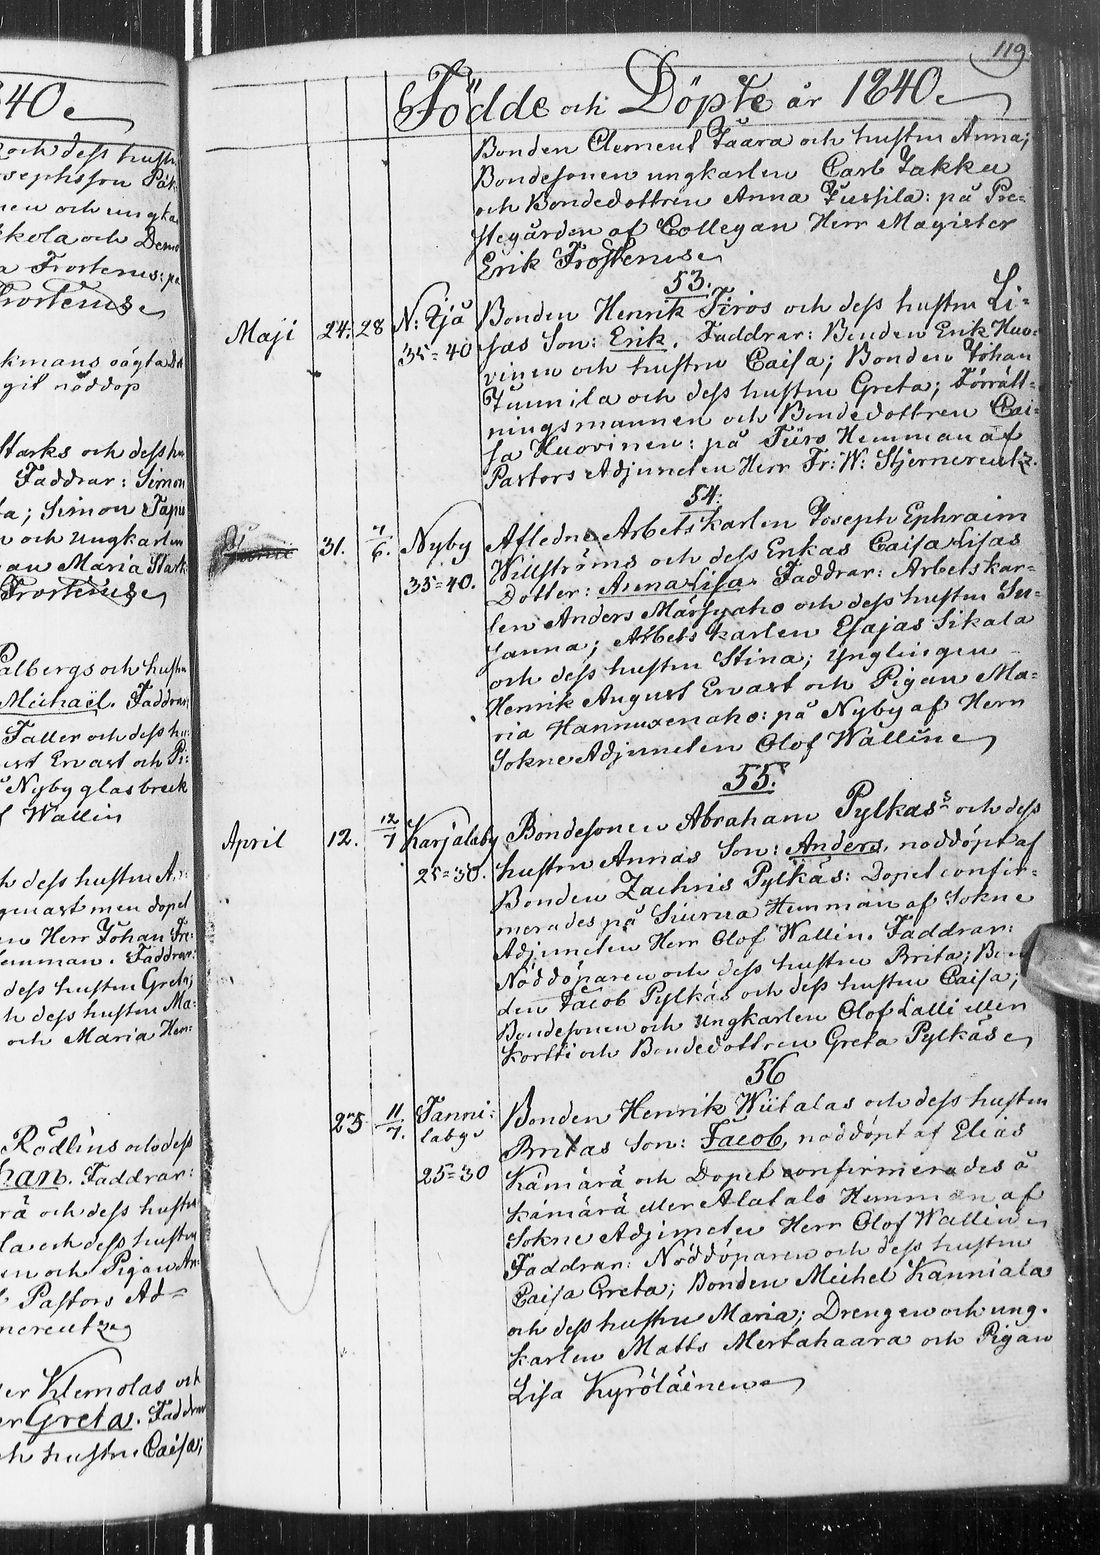 40
och dess hustru
Josephsson
nen och ungka
kola och Demo
a Frosterus: på
Frosterus
kmans oägta
git nöddop
Starks och dess hu
Faddrar: Simon
ta; Simon Tapio
n och ungkarlen
an Maria Stark
Frosterus
Palbergs och hustru
Michaël. Faddrar
Faller och dess hu:
ust Ervast och Pi:
Nyby glasbruk
f Wallin
h dess hustru An:
genast men dopet
en Herr Johan Fre:
emman. Faddrar:
dess hustru Greta;
h dess hustru Ma:
och Maria Hem:
Rödlins och dess
han. Faddrar:
rä och dess hustru
la och dess hustru
en och Pigan An:
Pastors Ad=
nereutz
er Klemolas och
er Greta. Faddrar
ch hustru Caisa;
119
Födde och Döpte år 1840
Bonden Clement Jaara och hustru Anna;
Bondesonen ungkarlen Carl Jakku
och Bondedottren Anna Jussila: på Pre=
stegården af Collegan Herr Magister
Erik Frosterus
53.
Maji 24. 28 N: Ijå Bonden Henrik Tiros och dess hustru Li=
35=40 sas Son: Erik. Faddrar: Bonden Erik Huo=
vinen och hustru Caisa; Bonden Johan
Tuunila och dess hustru Greta; Förrätt=
ningsmannen och Bondedottren Cai=
sa Huovinen: på Tiiro Hemman af
Pastors Adjuncten Herr Fr: W: Stjernereutz.
54.
31. 1/6. Nyby Afledne Arbetskarlen Joseph Ephraim
35=40. Willströms och dess Enkas Caisa Lisas
Dotter: Anna Lisa. Faddrar: Arbetskar=
len Anders Märsyaho och dess hustru Su=
sanna; Arbetskarlen Esajas Sikala
och dess hustru Stina; Ynglingen
Henrik August Ervast och Pigan Ma=
ria Hannuxenaho: på Nyby af Herr
Sokne Adjuncten Olof Wallin
55.
April 12. 12/7 Karjalaby Bondesonen Abraham Pylkäs och dess
25=30. hustru Annas Son: Anders, noddöpt af
Bonden Zachris Pylkäs: Dopet confir=
merades på Siurua Hemman af Sokne
Adjuncten Herr Olof Wallin. Faddrar:
Nöddöparen och dess hustru Brita; Bon=
den Jacob Pylkäs och dess hustru Caisa;
Bondesonen och ungkarlen Olof Lalli eller
Kortti och Bondedottren Greta Pylkäs
56
25 11/7. Tanni: Bonden Henrik Wiitalas och dess hustru
laby Britas Son: Jacob, noddöpt af Elias
25=30 Kämärä och Dopet confirmerades å
Kämärä eller Alatalo Hemman af
Sokne Adjuncten Herr Olof Wallin
Faddrar: Nöddöparen och dess hustru
Caisa Greta; Bonden Michel Kanniala
och dess hustru Maria; Drengen och ung.
karlen Matts Mertahaara och Pigan
Lisa Kyröläinen